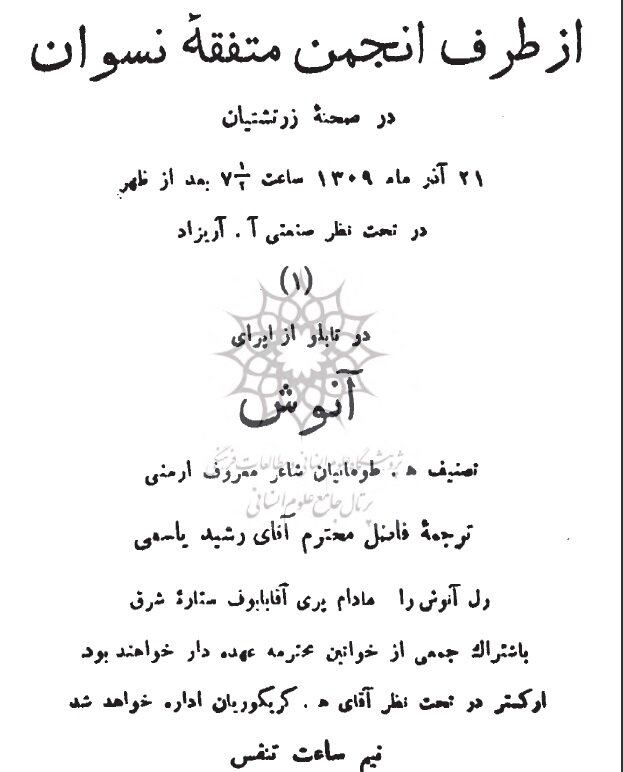 از طرف انجمن متفقهٔ نسوان
در صحنهٔ زرتشتیان
۲۱ آذر ماه ۱۳۰۹ ساعت ۷۱/۲ بعد از ظهر
در تحت نظر صنعتی آ . آریزاد
(۱)
دو تابلو از اپرای
آنوش
تصنیف ه . طومانیان شاعر معروف ارمنی
ترجمهٔ فاضل محترم آقای رشید یاسمی
رل آنوش را مادام پری آقابابوف ستارهٔ شرق
باشتراك جمعی از خوانین محترمه عهده دار خواهند بود
ارکستر در تحت نظر آقای ه . کریکوریان اداره خواهد شد
نیم ساعت تنفس
پژوهشگاه علوم انسانی و مطالعات فرهنگی
پرتال جامع علوم انسانی